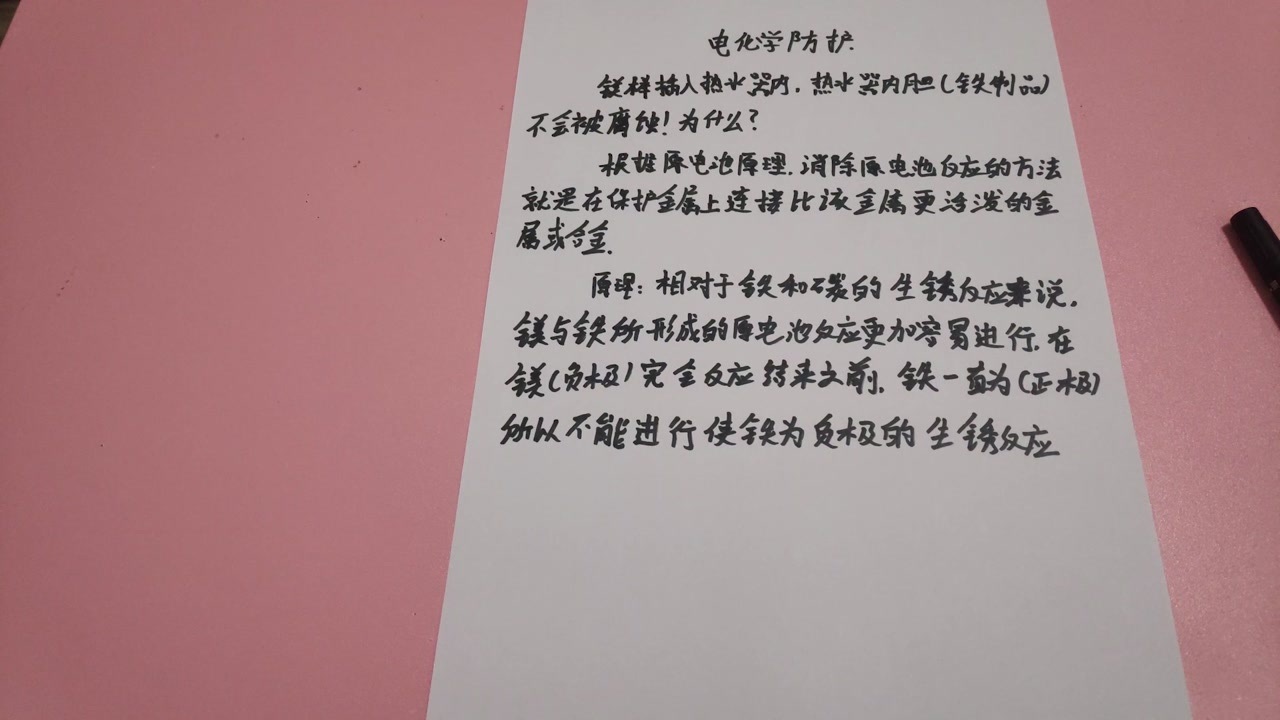 电化学防护
镁样插入热水器内，热水器内胆(铁制品)
不会被腐蚀！为什么？
根据原电池原理，消除原电池反应的方法
就是在保护金属上连接比该金属更活泼的金
属或合金。
原理：相对于铁和碳的生锈反应来说，
镁与铁所形成的原电池反应更加容易进行，在
镁(负极)完全反应结束之前，铁一直为(正极)
所以不能进行使铁为负极的生锈反应